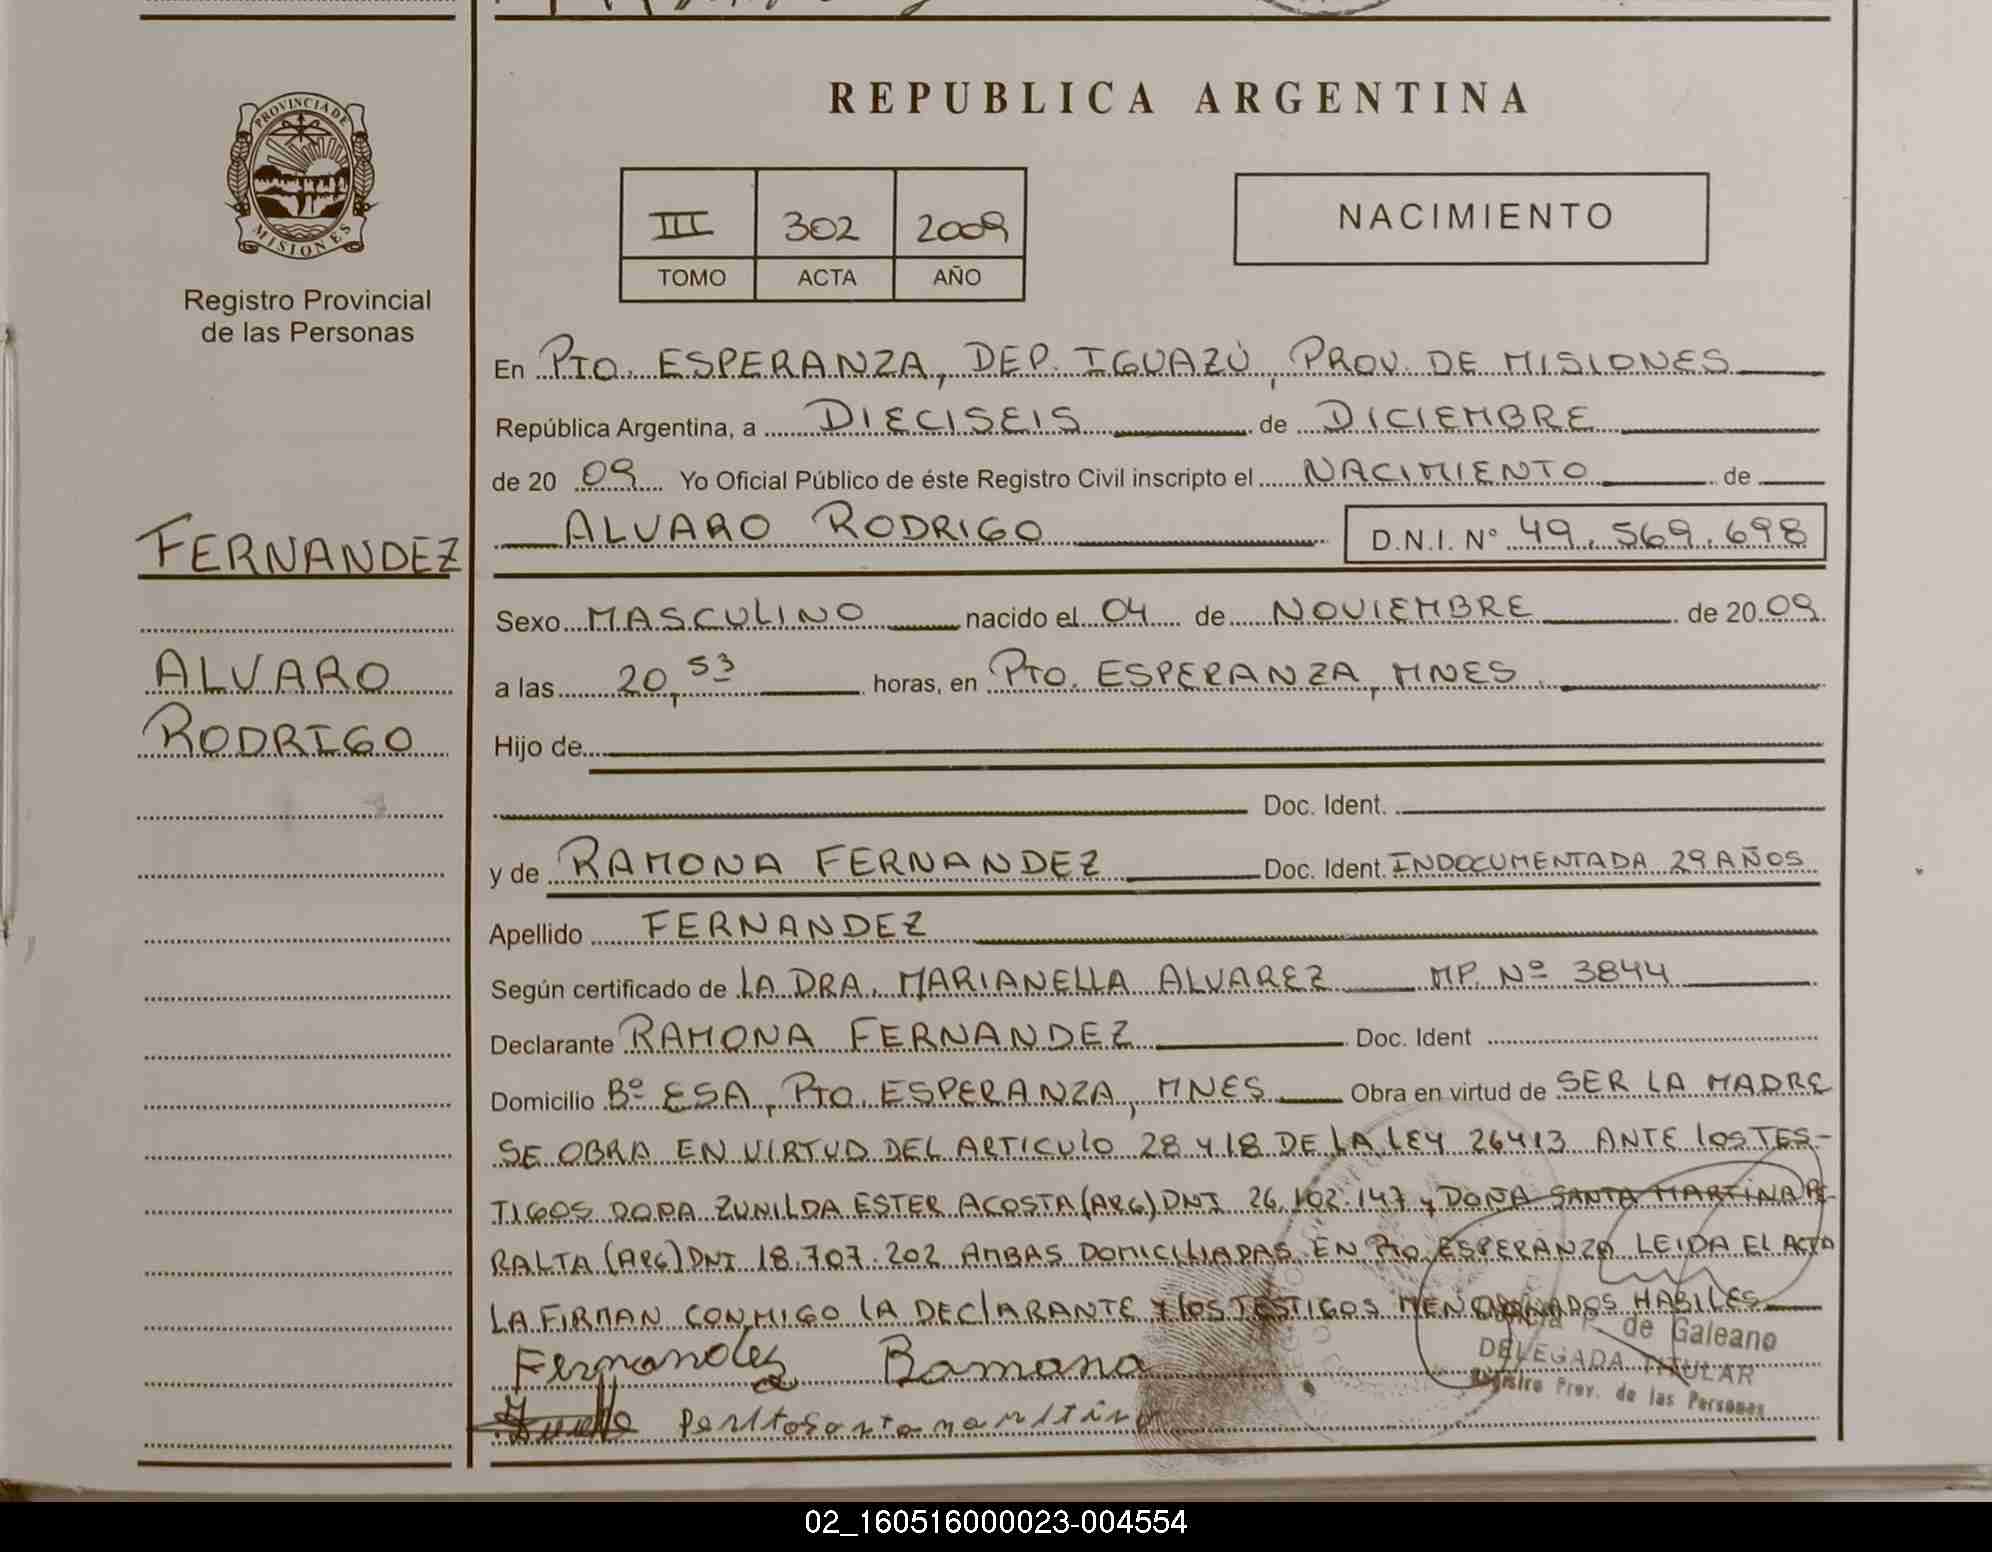 PROVINCIA DE
MISIONES
Registro Provincial
de las Personas
FERNANDEZ
ALVARO
RODRIGO
REPUBLICA ARGENTINA
III 302 2009
TOMO ACTA AÑO
NACIMIENTO
En PTO. ESPERANZA, DEP. IGUAZÚ, PROV. DE MISIONES
República Argentina, a DIECISEIS de DICIEMBRE
de 20 09 Yo Oficial Público de éste Registro Civil inscripto el NACIMIENTO de
ALVARO RODRIGO D.N.I. N° 49.569.698
Sexo MASCULINO nacido el 04 de NOVIEMBRE de 20 09
a las 20,53 horas, en PTO. ESPERANZA, MNES.
Hijo de
Doc. Ident.
y de RAMONA FERNANDEZ Doc. Ident. INDOCUMENTADA 29 AÑOS
Apellido FERNANDEZ
Según certificado de LA DRA. MARIANELLA ALVAREZ MP. Nº 3844
Declarante RAMONA FERNANDEZ Doc. Ident
Domicilio Bº ESA, PTO. ESPERANZA, MNES Obra en virtud de SER LA MADRE
SE OBRA EN VIRTUD DEL ARTICULO 28 Y 18 DE LA LEY 26413 ANTE LOS TES-
TIGOS DOÑA ZUNILDA ESTER ACOSTA (ARG) DNI 26.102.147 y DOÑA SANTA MARTINA PE-
RALTA (ARG) DNI 18.707.202 AMBAS DOMICILIADAS EN PTO ESPERANZA LEIDA EL ACTA
LA FIRMAN CONMIGO LA DECLARANTE Y LOS TESTIGOS MENCIONADOS HABILES
de Galeano
DELEGADA TITULAR
Registro Prov. de las Personas
Fernandez Ramona
02_160516000023-004554